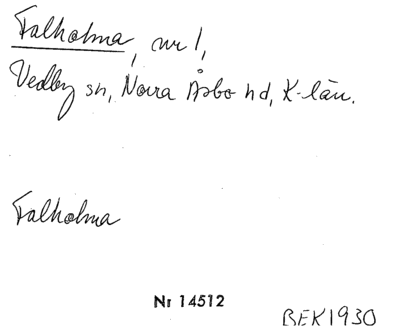 Falholma, nr 1,
Vedby sn, Norra Åsbo hd, K-län.
Falholma
Nr 14512
BEK1930